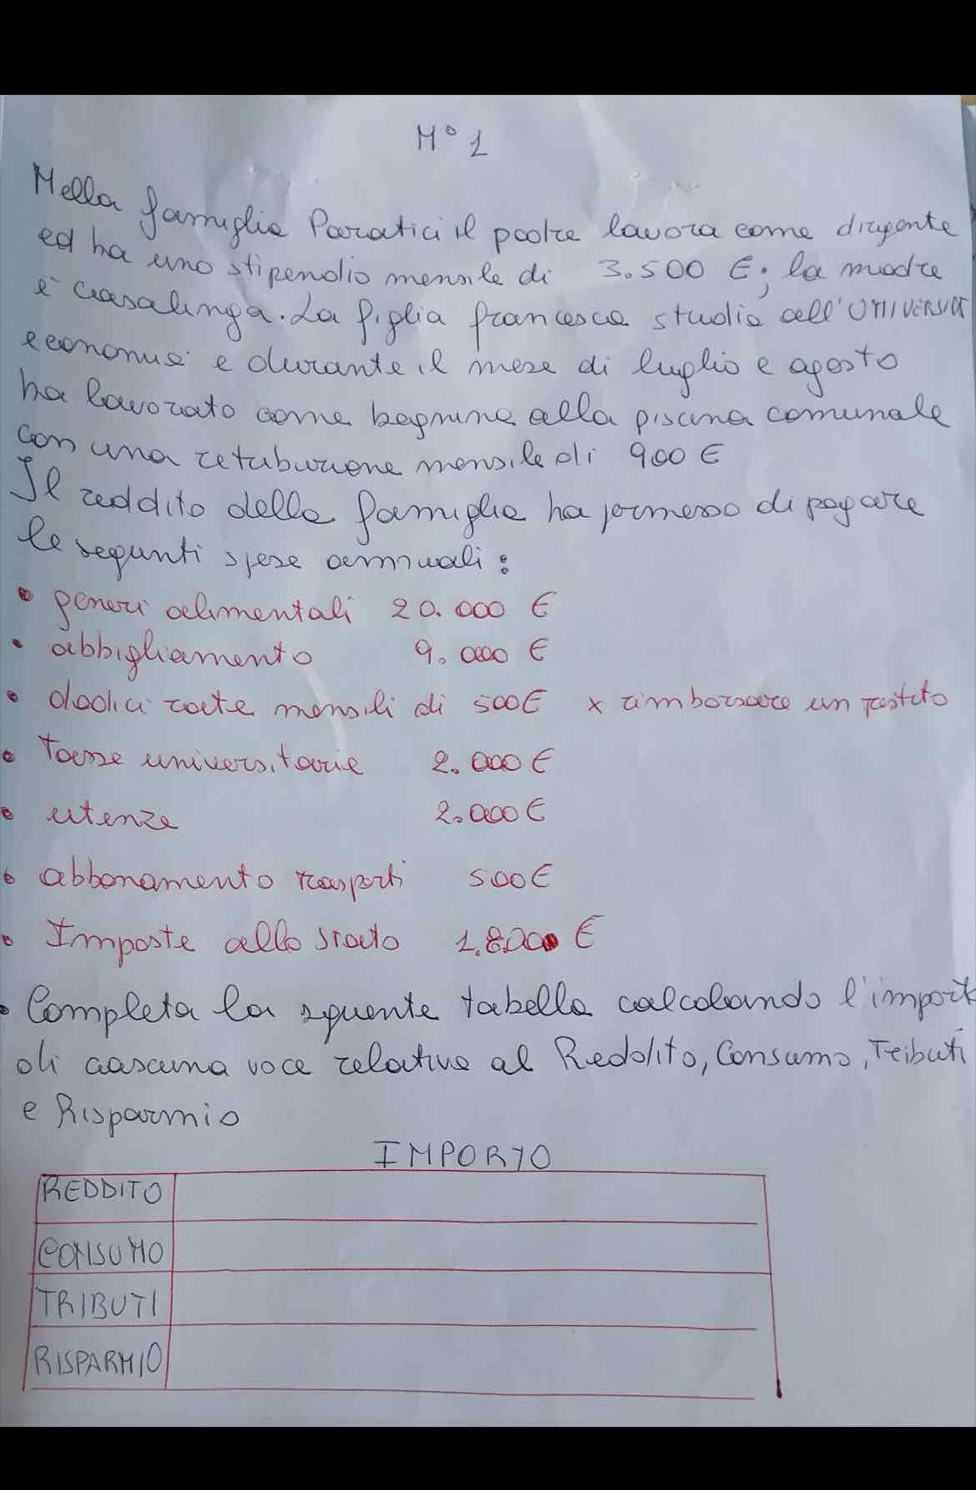 N° 1
Nella famiglia Paratici il padre lavora come dirigente
ed ha uno stipendio mensile di 3.500 €; la madre
è casalinga. La figlia francesca studia all'UNIVERSITÀ
economia e durante il mese di luglio e agosto
ha lavorato come bagnina alla piscina comunale
con una retribuzione mensile di 900 €
Il reddito della famiglia ha permesso di pagare
le segunti spese annuali:
• generi alimentali 20.000 €
• abbigliamento 9.000 €
• dodici rate mensili di 500€ x rimborsare un prestito
• Tasse universitarie 2.000 €
• utenze 2.000 €
• abbonamento trasporti 500€
• Imposte allo stato 1.800 €
• Completa la sguente tabella calcolando l'import
di ciascuna voce relativa al Reddito, Consumo, Tributi
e Risparmio
IMPORTO
REDDITO
CONSUMO
TRIBUTI
RISPARMIO